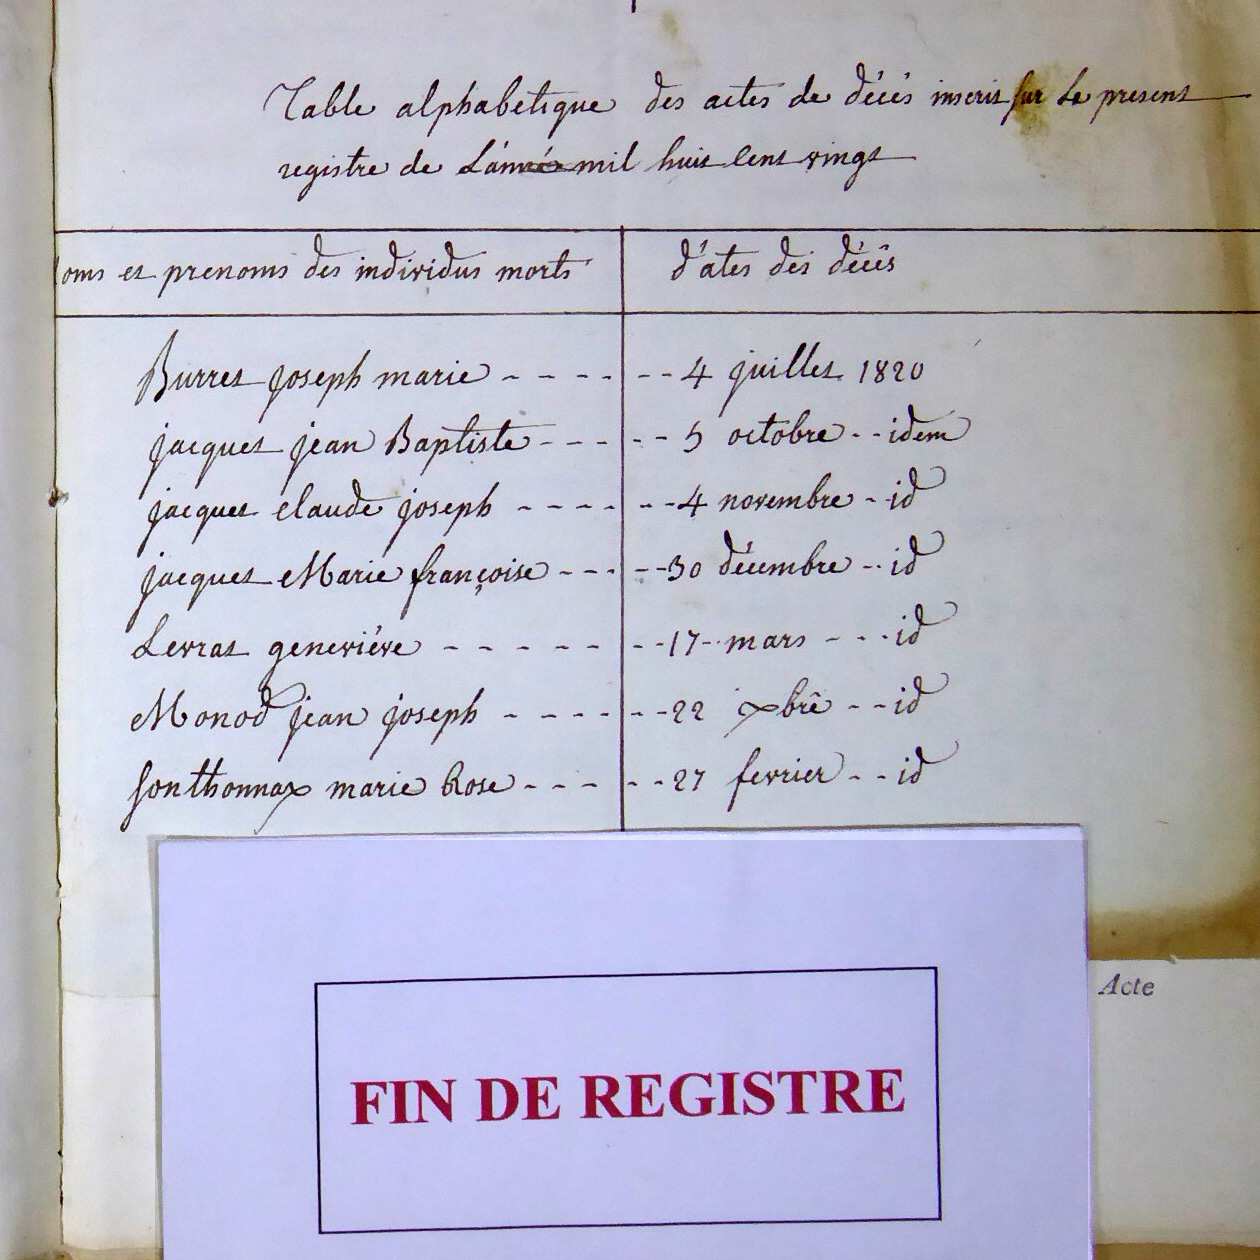 Table alphabetique des actes de décés inscrit sur Le present
registre de L'année mil huit Cent vingt
oms et prenoms des individus morts
d'ates des décés
Burret joseph marie - - - - - - 4 juillet 1820
jacquet jean Baptiste - - - - - 5 octobre - - idem
jacquet claude joseph - - - - - - 4 novembre - - id
jacquet Marie françoise - - - - - 30 décembre - - id
Levrat geneviéve - - - - - - - 17 - mars - - - id
Monod jean joseph - - - - - - 22 xbrê - - id
Sonthonnax marie Rose - - - - - - 27 fevrier - - id
Acte
FIN DE REGISTRE